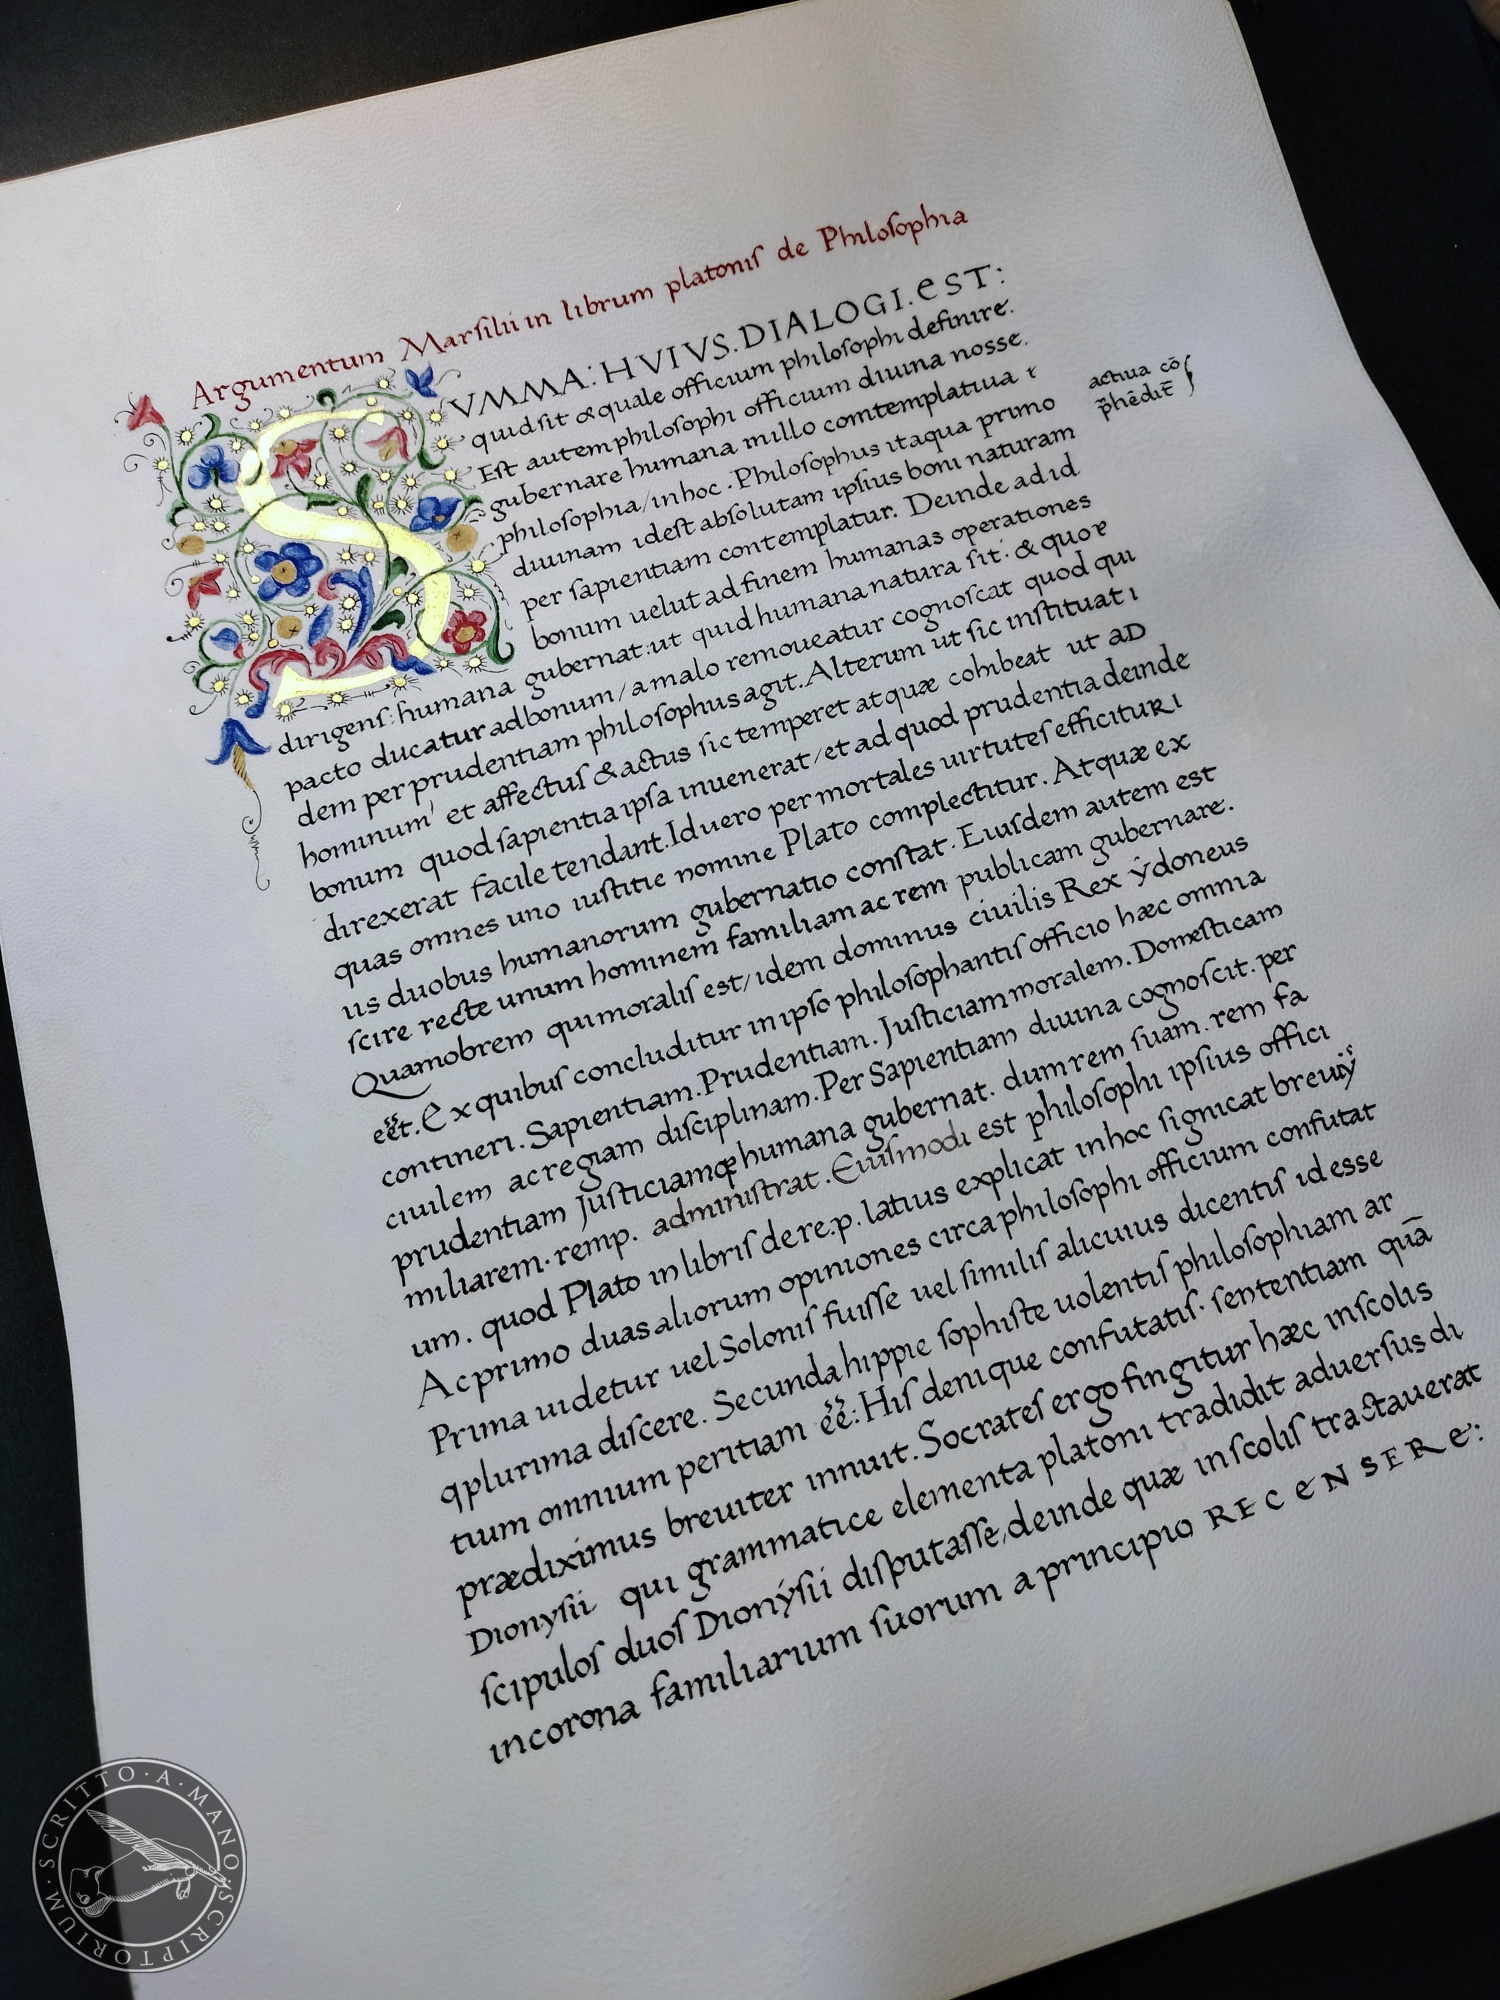 Argumentum Marſilii in librum platoniſ de Philoſophia
SVMMA: HVIVS. DIALOGI. EST:
quid ſit & quale officium philoſophi definire.
Eſt autem philoſophi officium diuina nosse.
gubernare humana in illo comtemplatiua &
philoſophia/in hoc. Philoſophus itaqua primo
diuinam ideſt abſolutam ipſius boni naturam
per ſapientiam contemplatur. Deinde ad id
bonum uelut ad finem humanas operationes
dirigenſ: humana gubernat: ut quid humana natura ſit: & quo e
pacto ducatur ad bonum/a malo remoueatur cognoſcat quod qui
dem per prudentiam philoſophus agit. Alterum ut ſic inſtituat i
hominum et affectuſ & actus ſic temperet atquæ cohibeat ut aD
bonum quod ſapientia ipſa inuenerat/et ad quod prudentia deinde
direxerat facile tendant. Id uero per mortales uirtuteſ efficituRi
quas omnes uno iuſtitie nomine Plato complectitur. Atquæ ex
iis duobus humanorum gubernatio conſtat. Eiuſdem autem est
ſcire recte unum hominem familiam ac rem publicam gubernare.
Quamobrem qui moraliſ est/idem dominus ciuilis Rex ẏdoneus
eēt. Ex quibuſ concluditur in ipſo philoſophantiſ officio hæc omnia
contineri. Sapientiam. Prudentiam. Juſticiam moralem. Domeſticam
ciuilem ac regiam diſciplinam. Per Sapientiam diuina cognoſcit. per
prudentiam Juſticiamqꝫ humana gubernat. dum rem ſuam. rem fa
miliarem. remp. adminiſtrat. Eiuſmodi est philoſophi ipſius offici
um. quod Plato in libriſ de re.p. latius explicat in hoc ſignicat breuiẏ
Ac primo duas aliorum opiniones circa philoſophi officium confutat
Prima uidetur uel Soloniſ fuiſſe uel ſimiliſ alicuius dicentiſ id esse
qplurima diſcere. Secunda hippie ſophiſte uolentiſ philoſophiam ar
tium omnium peritiam ēē: Hiſ denique confutatiſ. ſententiam quā
prædiximus breuiter innuit. Socrateſ ergo fingitur hæc inſcolis
Dionyſii qui grammatice elementa platoni tradidit aduerſus di
ſcipuloſ duoſ Dionẏſii diſputaſſe, deinde quæ in ſcoliſ tractauerat
in corona familiarium ſuorum a principio RECENSERE:
actiua cō
p̄hēdit̄
SCRITTO·A·MANO·SCRIPTORIUM·